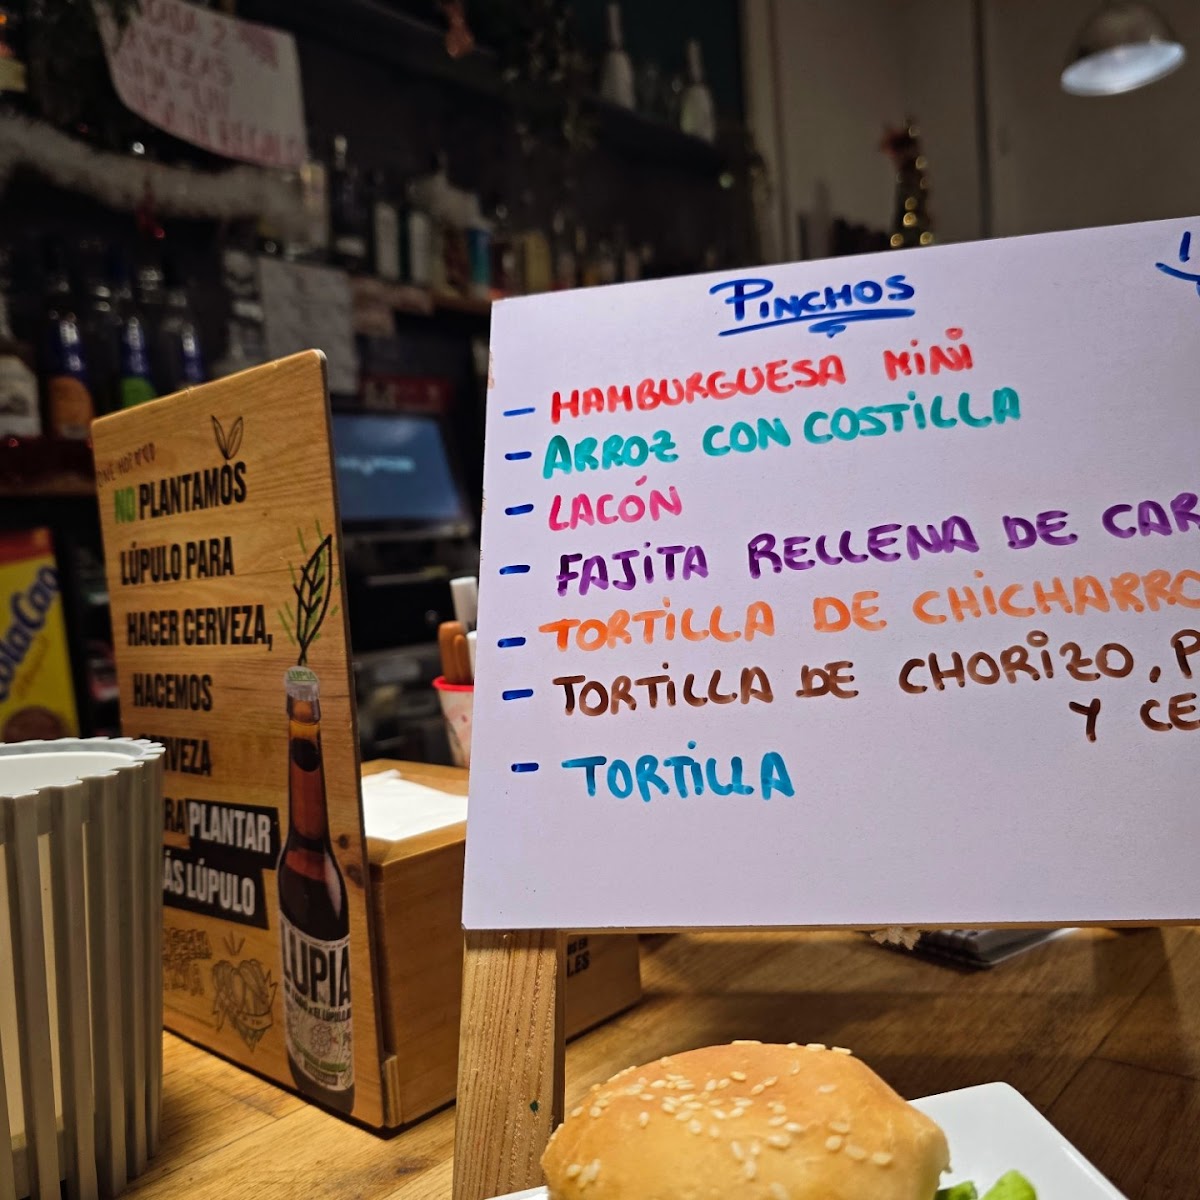 PINCHOS
- HAMBURGUESA MINI
- ARROZ CON COSTILLA
- LACÓN
- FAJITA RELLENA DE CAR
- TORTILLA DE CHICHARRO
- TORTILLA DE CHORIZO, P
Y CE
- TORTILLA
NO PLANTAMOS
LÚPULO PARA
HACER CERVEZA,
HACEMOS
CERVEZA
PLANTAR
LÚPULO
LUPIA
ColaCao